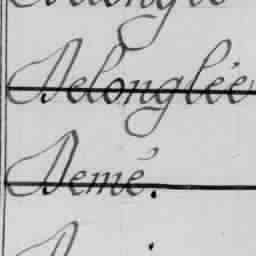 Delonglée
Demé.